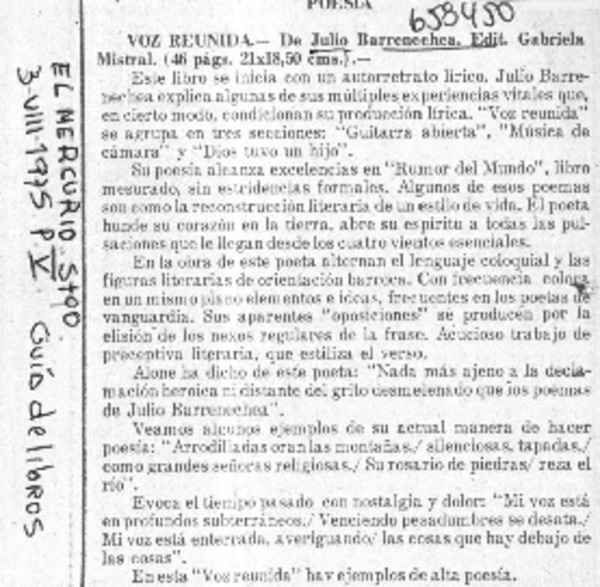 POESIA
658450
VOZ REUNIDA.— De Julio Barrenechea. Edit. Gabriela
Mistral. (46 págs. 21x18,50 cms.).—
Este libro se inicia con un autorretrato lírico. Julio Barre-
nechea explica algunas de sus múltiples experiencias vitales que,
en cierto modo, condicionan su producción lírica. "Voz reunida"
se agrupa en tres secciones: "Guitarra abierta", "Música de
cámara" y "Dios tuvo un hijo".
Su poesía alcanza excelencias en "Rumor del Mundo", libro
mesurado, sin estridencias formales. Algunos de esos poemas
son como la reconstrucción literaria de un estilo de vida. El poeta
hunde su corazón en la tierra, abre su espíritu a todas las pul-
saciones que le llegan desde los cuatro vientos esenciales.
En la obra de este poeta alternan el lenguaje coloquial y las
figuras literarias de orientación barroca. Con frecuencia coloca
en un mismo plano elementos e ideas, frecuentes en los poetas de
vanguardia. Sus aparentes "oposiciones" se producen por la
elisión de los nexos regulares de la frase. Acucioso trabajo de
preceptiva literaria, que estiliza el verso.
Alone ha dicho de este poeta: "Nada más ajeno a la decla-
mación heroica ni distante del grito desmelenado que los poemas
de Julio Barrenechea".
Veamos algunos ejemplos de su actual manera de hacer
poesía: "Arrodilladas oran las montañas,/ silenciosas, tapadas,/
como grandes señoras religiosas./ Su rosario de piedras/ reza el
río".
Evoca el tiempo pasado con nostalgia y dolor: "Mi voz está
en profundos subterráneos./ Venciendo pesadumbres se desata./
Mi voz está enterrada, averiguando/ las cosas que hay debajo de
las cosas".
En esta "Voz reunida" hay ejemplos de alta poesía.
EL MERCURIO. Stgo.
3-VIII-1975 P. V
Guía de libros